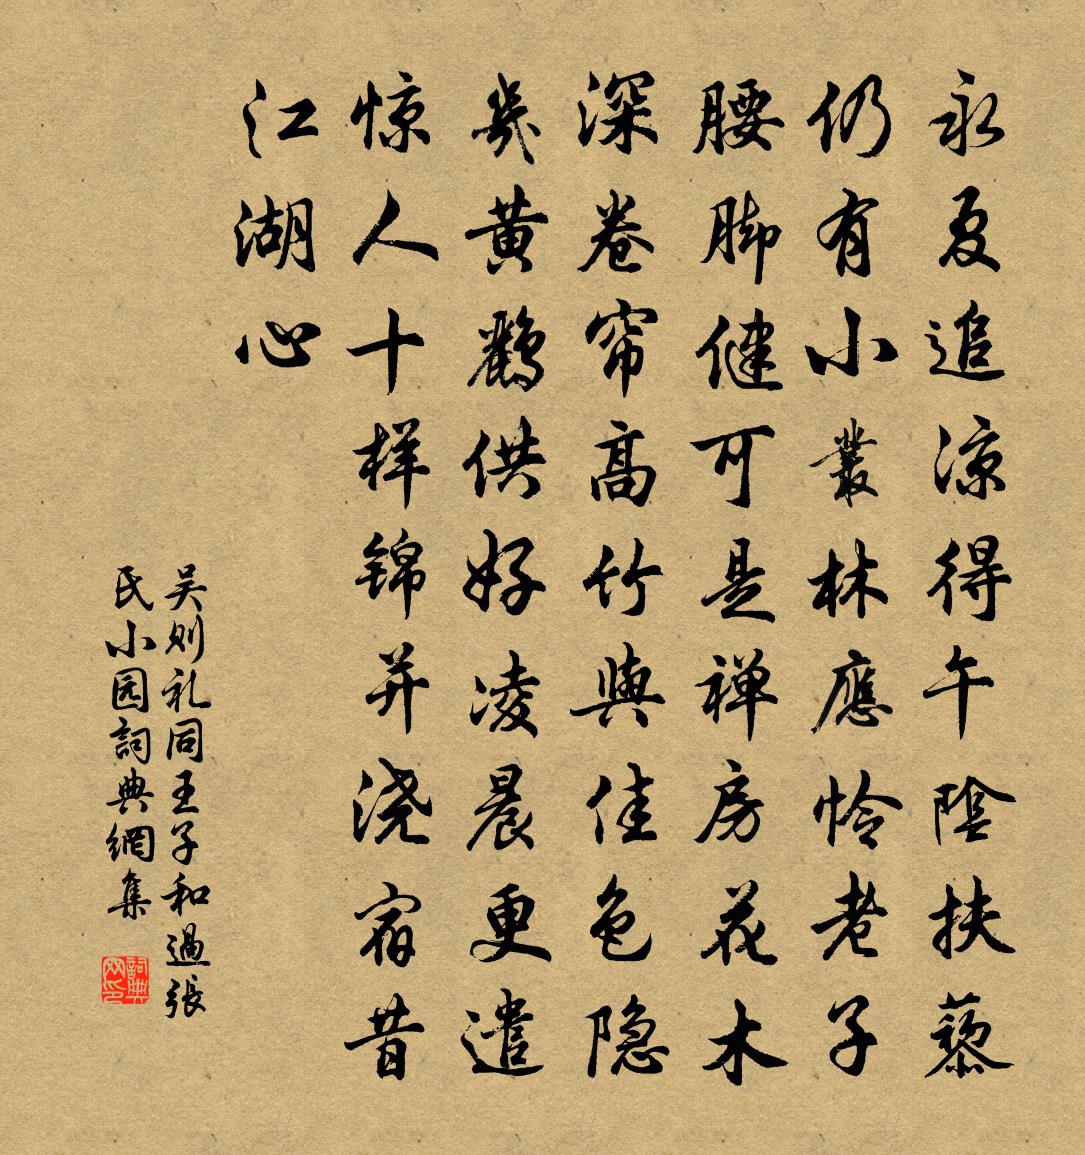 永夏追涼得午陰扶藜
仍有小叢林應怜老子
腰脚健可是禅房花木
深卷帘高竹與佳色隐
幾黄鸝供好凌晨更遣
惊人十样锦并浇宿昔
江湖心
吴则礼同王子和過張
氏小园詞典網集
詞典
网印